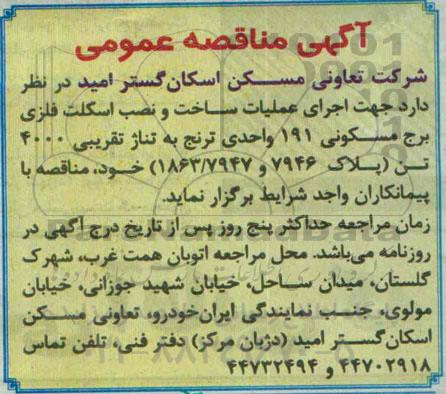 آگهی مناقصه عمومی
شرکت تعاونی مسکن اسکان‌گستر امید در نظر
دارد جهت اجرای عملیات ساخت و نصب اسکلت فلزی
برج مسکونی ۱۹۱ واحدی ترنج به تناژ تقریبی ۴۰۰۰
تن (پلاک ۷۹۴۶ و ۱۸۶۳/۷۹۴۷) خود، مناقصه با
پیمانکاران واجد شرایط برگزار نماید.
زمان مراجعه حداکثر پنج روز پس از تاریخ درج آگهی در
روزنامه می‌باشد. محل مراجعه اتوبان همت غرب، شهرک
گلستان، میدان ساحل، خیابان شهید جوزانی، خیابان
مولوی، جنب نمایندگی ایران‌خودرو، تعاونی مسکن
اسکان‌گستر امید (دژبان مرکز) دفتر فنی، تلفن تماس
۴۴۷۰۲۹۱۸ و ۴۴۷۳۲۴۹۴